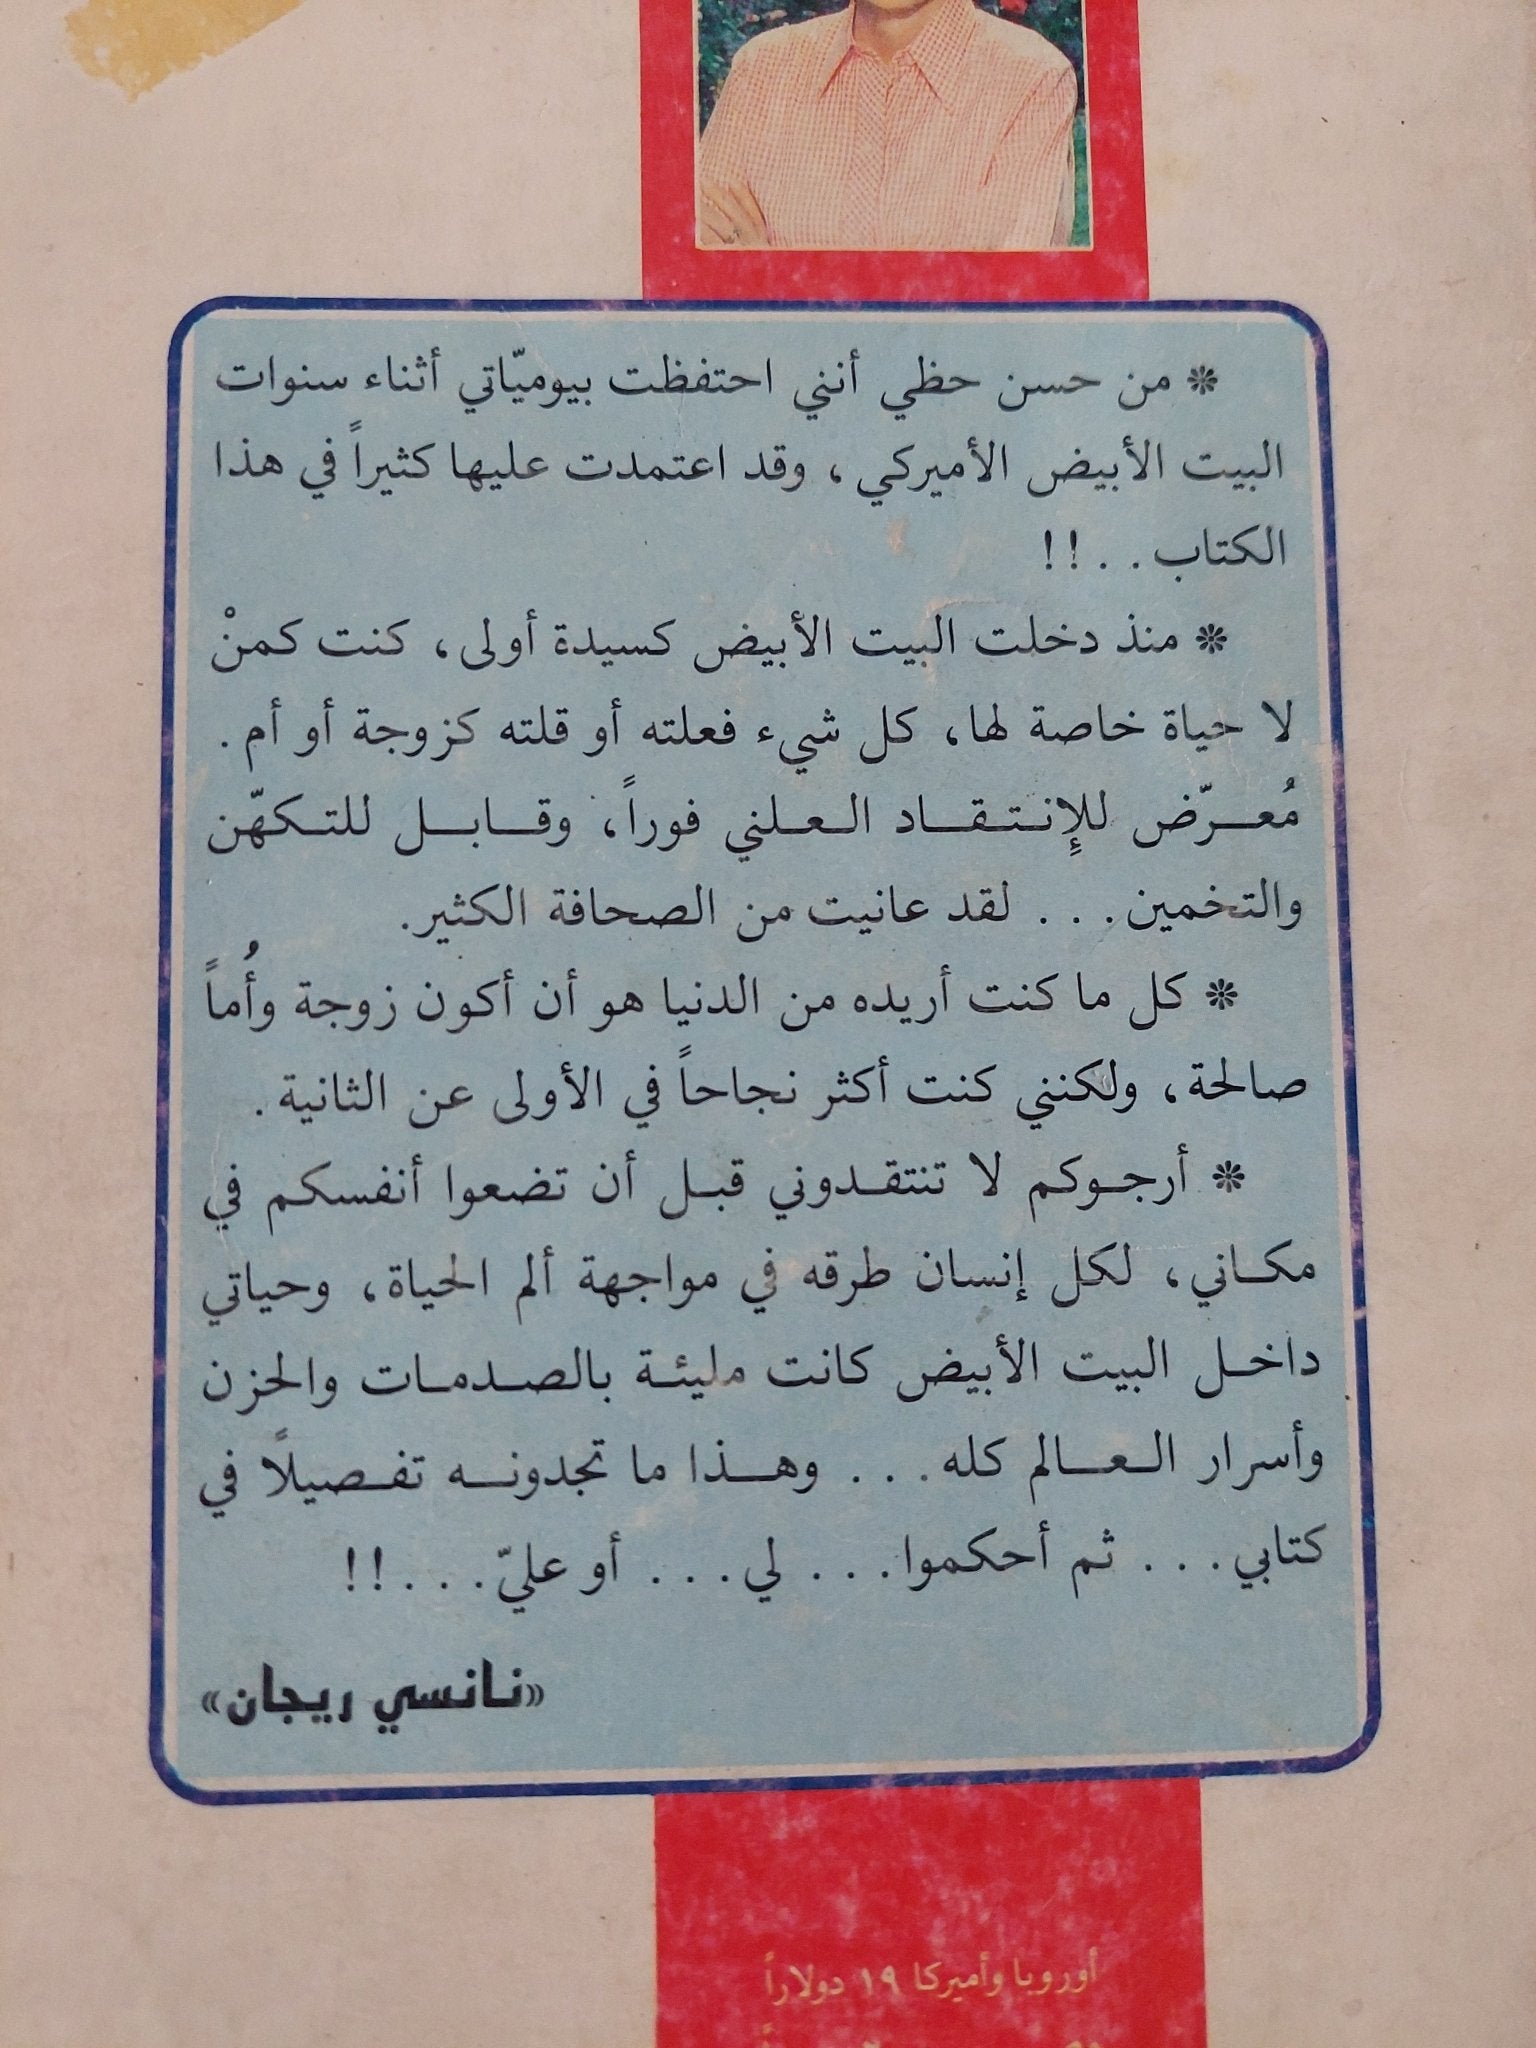 ❊ من حسن حظي أنني احتفظت بيوميّاتي أثناء سنوات
البيت الأبيض الأميركي ، وقد اعتمدت عليها كثيراً في هذا
الكتاب . . !!
❊ منذ دخلت البيت الأبيض كسيدة أولى، كنت كمنْ
لا حياة خاصة لها، كل شيء فعلته أو قلته كزوجة أو أم .
مُعـرّض للإِنـتـقـاد الـعـلني فوراً، وقـابـل للتـكـهّن
والتخمين . . . لقد عانيت من الصحافة الكثير.
❊ كل ما كنت أريده من الدنيا هو أن أكون زوجة وأُماً
صالحة، ولكنني كنت أكثر نجاحاً في الأولى عن الثانية .
❊ أرجـوكم لا تنتقـدوني قبـل أن تضعوا أنفسكم في
مكـاني، لكل إنسان طرقه في مواجهة ألم الحياة، وحياتي
داخـل البيت الأبيض كانت مليئـة بالصـدمـات والحزن
وأسرار الـعـالم كله . . . وهـذا ما تجدونـه تفـصيلاً في
كتابي . . . ثم أحكموا . . . لي . . . أو عليّ . . . !!
«نـانسي ريجان»
أوروبا وأميركا ١٩ دولاراً